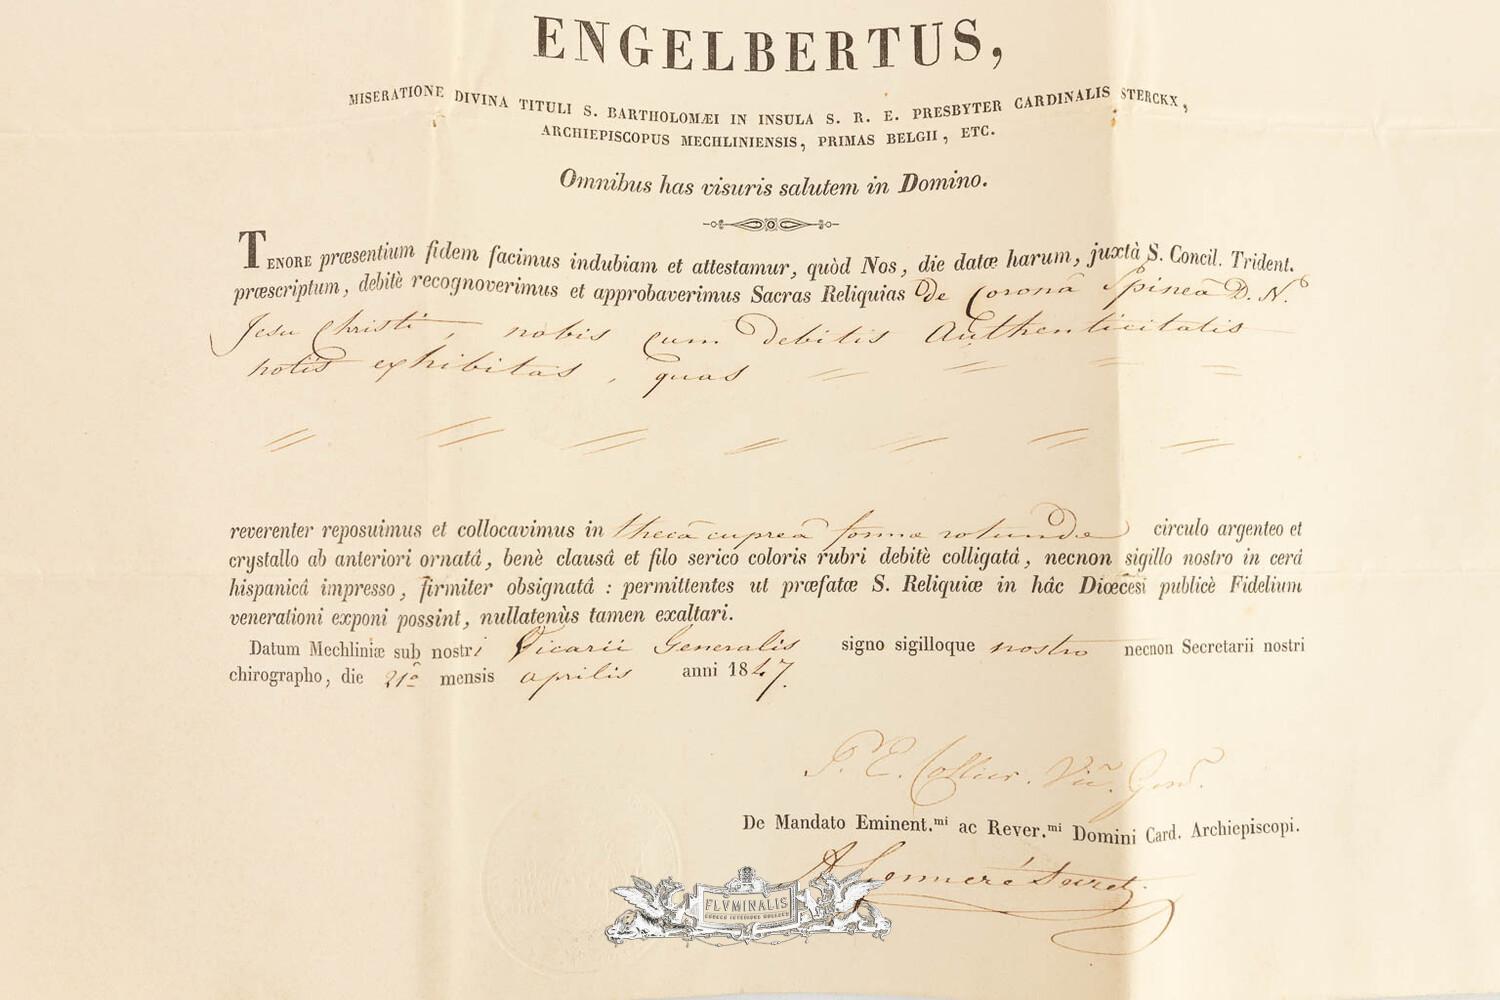 ENGELBERTUS,
MISERATIONE DIVINA TITULI S. BARTHOLOMÆI IN INSULA S. R. E. PRESBYTER CARDINALIS STERCKX,
ARCHIEPISCOPUS MECHLINIENSIS, PRIMAS BELGII, ETC.
Omnibus has visuris salutem in Domino.
TENORE præsentium fidem facimus indubiam et attestamur, quòd Nos, die datæ harum, juxtà S. Concil. Trident.
præscriptum, debitè recognoverimus et approbaverimus Sacras Reliquias de Coronâ Spineâ D. N.
Jesu Christi, nobis cum debitis Authenticitatis
notis exhibitas, quas
reverenter reposuimus et collocavimus in thecâ cupreâ formæ rotundæ circulo argenteo et
crystallo ab anteriori ornatâ, benè clausâ et filo serico coloris rubri debitè colligatâ, necnon sigillo nostro in cerâ
hispanicâ impresso, firmiter obsignatâ : permittentes ut præfatæ S. Reliquiæ in hâc Diœcesi publicè Fidelium
venerationi exponi possint, nullatenùs tamen exaltari.
Datum Mechliniæ sub nostri Vicarii Generalis signo sigilloque nostro necnon Secretarii nostri
chirographo, die 21â mensis aprilis anni 1847.
P. E. Collier. Vic. Gen.
De Mandato Eminent.mi ac Rever.mi Domini Card. Archiepiscopi.
FLVMINALIS